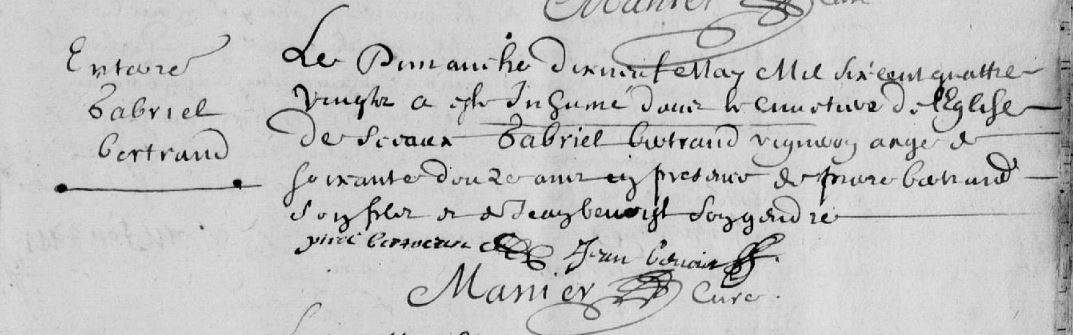 Manier Curé
Enterré
Gabriel
bertrand
Le Dimanche dixneuf May Mil six cent quattre
vingtz a este Inhumé dans le cimetiere de l'Eglise
de Sceaux Gabriel bertrand vigneron aagé de
soixante douze ans en presence de pierre bertrand
son filz et de Jean benoist son gendre
pierre bertran Jean benoist
Manier Curé